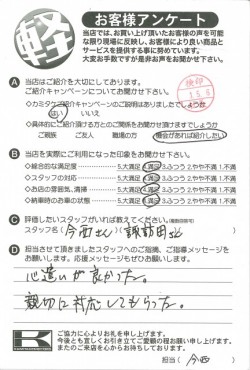 軽
お客様アンケート
当店では、お買い上げ頂いたお客様の声を可能
な限り現場に反映し、お客様により良い商品と
サービスを提供する事に努めています。
大変お手数ですが是非お声をお聞かせ下さい。
A 当店はご紹介を大切にしております。
ご紹介キャンペーンについてお聞かせ下さい。
◇カミタケご紹介キャンペーンのご説明はありましたでしょうか
はい いいえ
◇具体的にご紹介頂ける方とのご関係をお聞かせ頂けますでしょうか
ご親族 ご友人 職場の方 機会があれば紹介したい
B 当店を実際にご利用になった印象をお聞かせ下さい。
◇総合的な満足度 5.大満足 4.満足 3.ふつう 2.やや不満 1.不満
◇スタッフの対応 5.大満足 4.満足 3.ふつう 2.やや不満 1.不満
◇お店の雰囲気、清掃 5.大満足 4.満足 3.ふつう 2.やや不満 1.不満
◇納車時のお車の状態 5.大満足 4.満足 3.ふつう 2.やや不満 1.不満
C 評価したいスタッフがいれば教えてください。
スタッフ名( 今西さん )( 諏訪田さん )
D 担当させて頂きましたスタッフへのご指摘、ご指導メッセージを
お願いします。応援メッセージもぜひお願いします。
心遣いが良かった。
親切に対応してもらった。
K
ご協力に心よりお礼を申し上げます。
今後とも宜しくお引き立てご愛顧の程お願い申し上げます。
またのご来店を心からお待ちしております。
担当( 今西 )